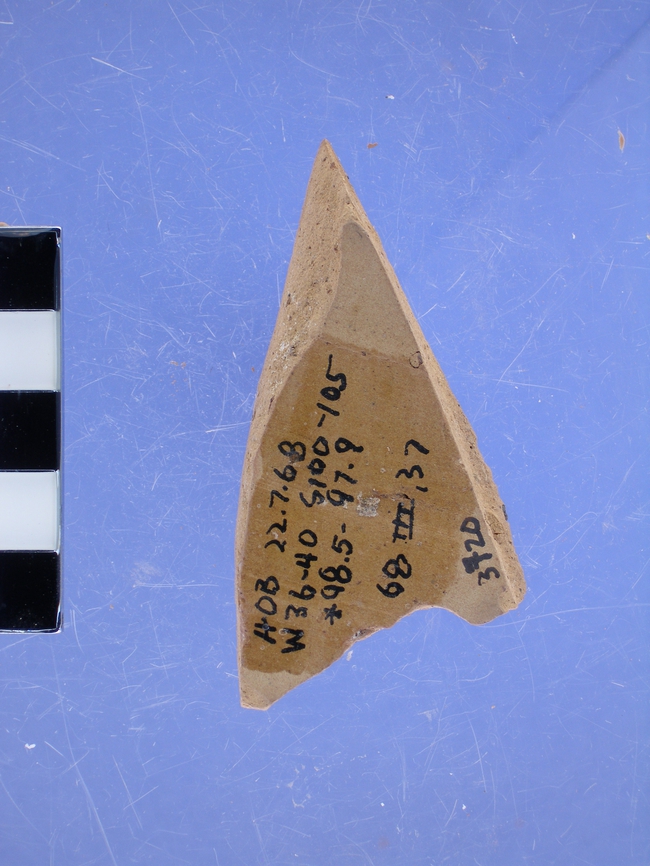 HOB 22.7.68
W36-40 S100-105
*98.5-97.9
68 III,37
3420